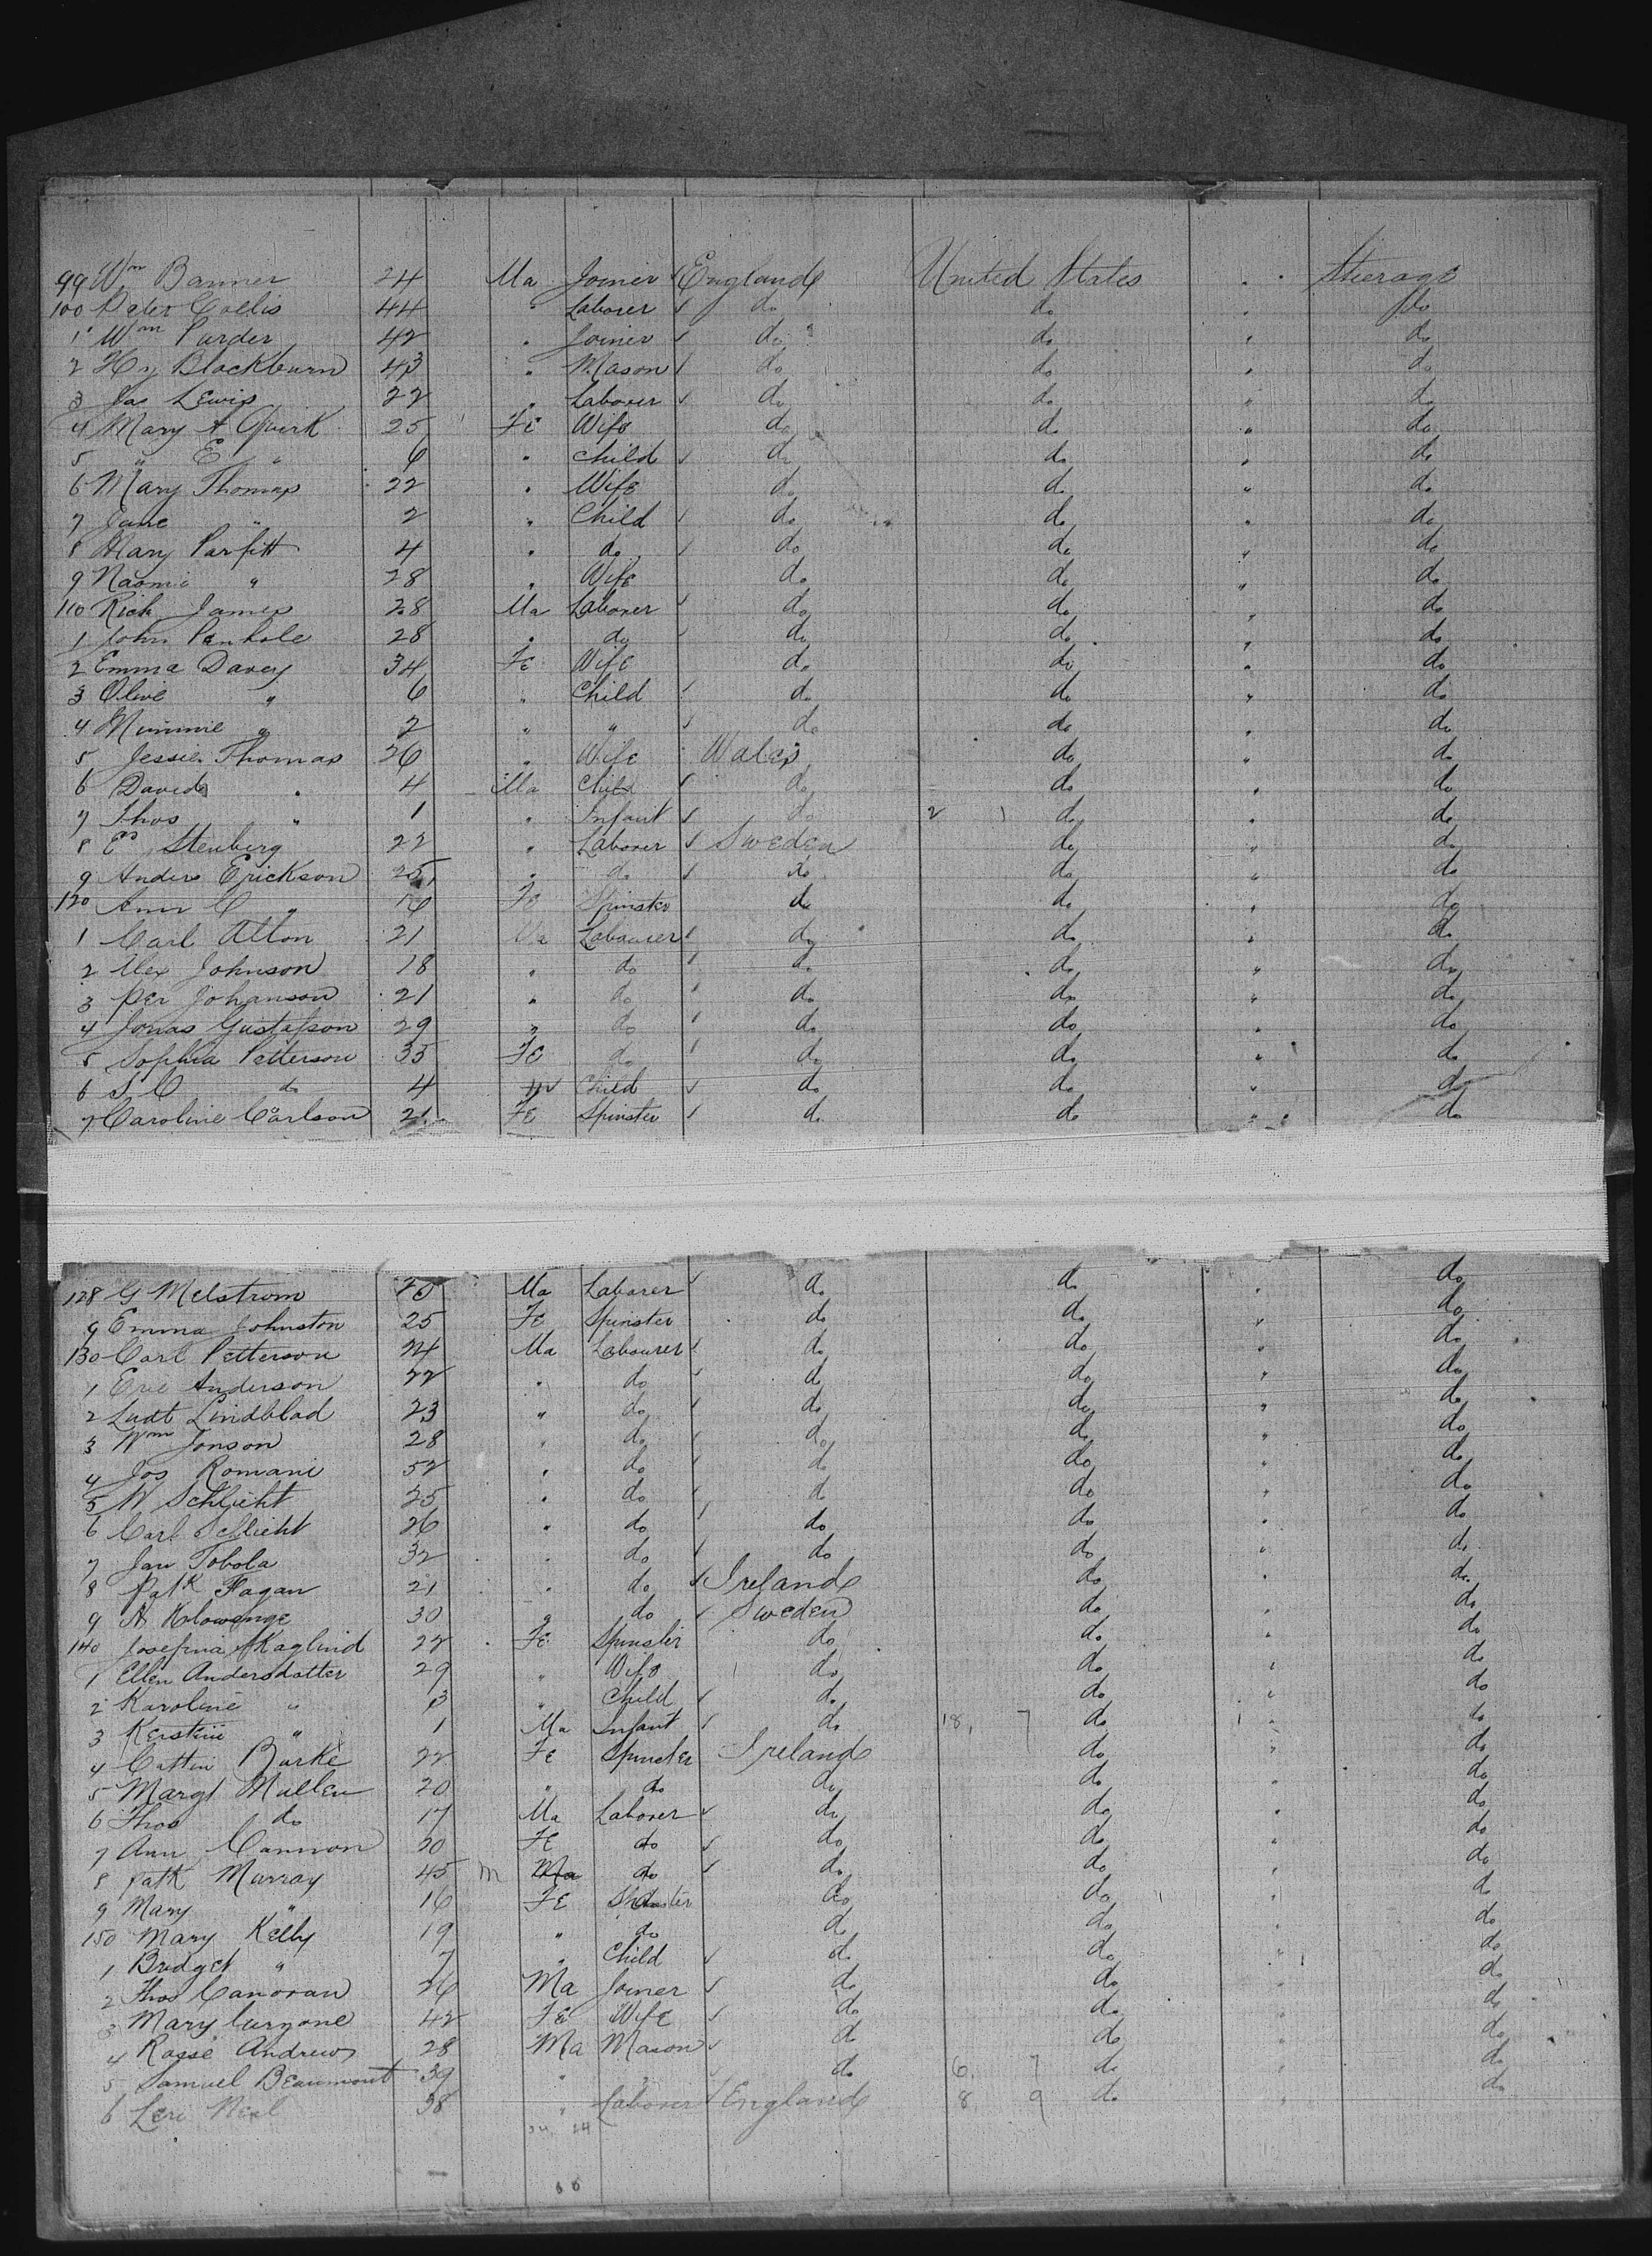 99 Wm Banner 24 Ma Joiner England United States " Steerage
100 Peter Collis 44 " Laborer do do " do
1 Wm Purder 42 " Joiner do do " do
2 Hy Blackburn 43 " Mason do do " do
3 Jas Lewis 22 " Laborer do do " do
4 Mary A Quirk 25 Fe Wife do do " do
5 " E " 6 " Child do do " do
6 Mary Thomas 22 " Wife do do " do
7 Jane " 2 " Child do do " do
8 Mary Parfitt 4 " do do do " do
9 Naomi " 28 " Wife do do " do
110 Rich James 28 Ma Laborer do do " do
1 John Penhale 28 " do do do " do
2 Emma Davey 34 Fe Wife do do " do
3 Olive " 6 " Child do do " do
4 Minnie " 2 " " do do " do
5 Jessie Thomas 26 " Wife Wales do " do
6 David " 4 Ma Child do do " do
7 Thos " 1 " Infant do 2 1 do " do
8 Es Stenberg 22 " Laborer Sweden do " do
9 Anders Erickson 25 " do do do " do
120 Ann C " Fe Spinster do do " do
1 Carl Alton 21 Ma Labourer do do " do
2 Alex Johnson 18 " do do do " do
3 Per Johanson 21 " do do do " do
4 Jonas Gustafson 29 " do do do " do
5 Sophia Petterson 35 Fe do do do " do
6 S C do 4 Child do do " do
7 Caroline Carlson 21 Fe Spinster do do " do
128 G Melstrom Ma Laborer do do " do
9 Emma Johnston 25 Fe Spinster do do " do
130 Carl Petterson 24 Ma Labourer do do " do
1 Eric Anderson 22 " do do do " do
2 Ludt Lindblad 23 " do do do " do
3 Wm Jonson 28 " do do do " do
4 Jos Romani 52 " do do do " do
5 W Schlicht 25 " do do do " do
6 Carl Schlicht 26 " do do do " do
7 Jan Tobola 32 " do do do " do
8 Patk Fagan 21 " do Ireland do " do
9 A 30 " do Sweden do " do
140 Josefina Skaglind 22 Fe Spinster do do " do
1 Ellen Andersdatter 29 " Wife do do " do
2 Karoline " 3 " Child do do " do
3 Kerstin " 1 Ma Infant do 18, 7 do " do
4 Burke 22 Fe Spinster Ireland do " do
5 Margt Mullen 20 " do do do " do
6 Thos do 17 Ma Laborer do do " do
7 Ann Cannon 20 Fe do do do " do
8 Patk Murray 45 m Ma do do do " do
9 Mary " 16 Fe Spinster do do " do
150 Mary Kelly 19 " do do do " do
1 Bridget " 7 " Child do do " do
2 Thos Canovan 26 Ma Joiner do do " do
3 Mary Curzone 42 Fe Wife do do " do
4 Rosse Andrews 28 Ma Mason do do " do
5 Samuel Beaumont 39 " " do 6, 7 do " do
6 Levi Neal 38 " Laborer England 8 9 do " do